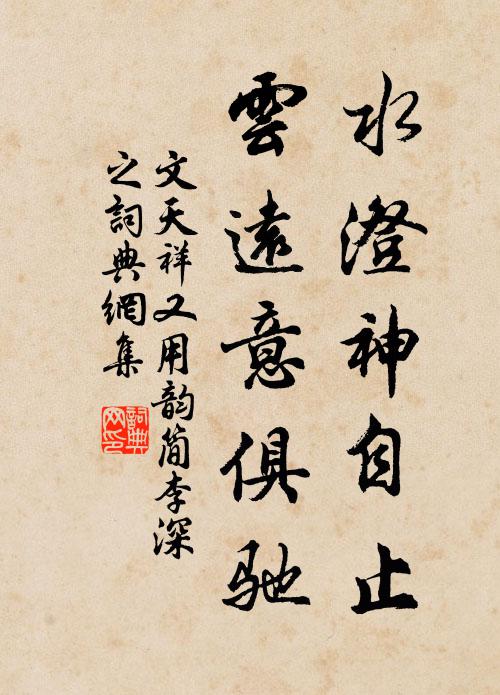 水澄神自止
雲遠意俱馳
文天祥又用韵简李深
之詞典網集
詞典
网印